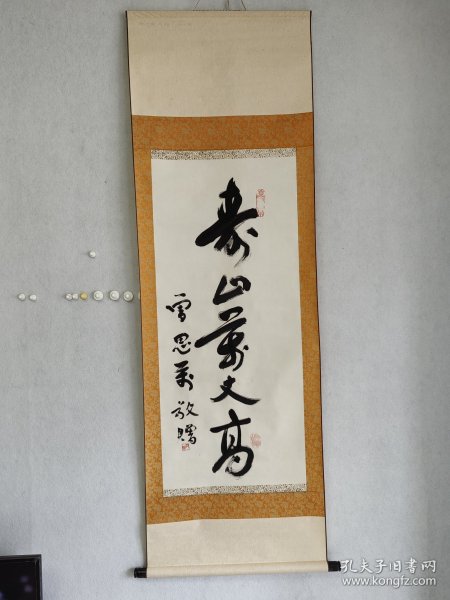 寿山萬丈高
雪思萬敬贈
孔夫子旧书网
www.kongfz.com